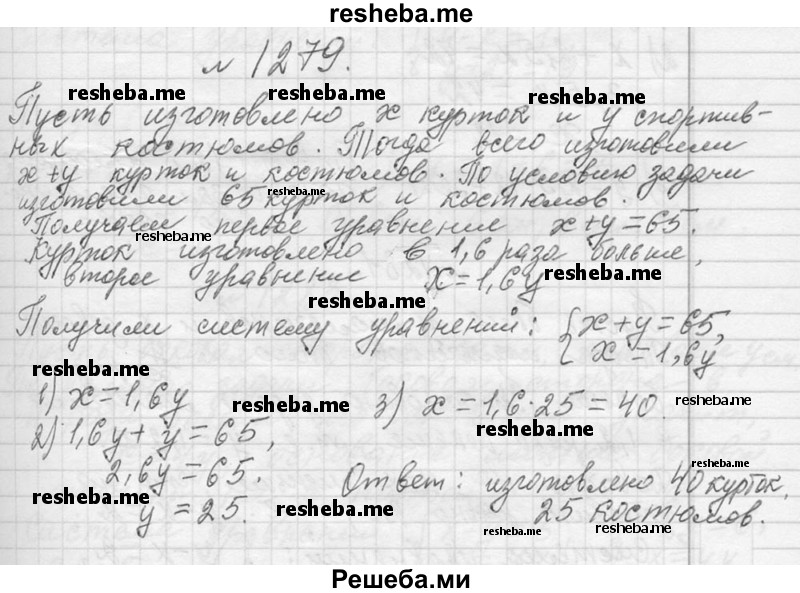 resheba.me
№ 1279.
resheba.me resheba.me resheba.me
Пусть изготовлено x курток и y спортив-
ных костюмов. Тогда всего изготовили
x+y курток и костюмов. По условию задачи
resheba.me
изготовили 65 курток и костюмов.
Получаем первое уравнение x+y=65.
resheba.me
Курток изготовлено в 1,6 раза больше,
второе уравнение x=1,6y
resheba.me
resheba.me
Получили систему уравнений: { x+y=65,
x=1,6y
resheba.me
1) x=1,6y
resheba.me
3) x=1,6·25=40.
resheba.me
2) 1,6y+y=65,
resheba.me
2,6y=65.
resheba.me
Ответ: изготовлено 40 курток,
resheba.me
y=25.
resheba.me
25 костюмов.
resheba.me
resheba.me
Решеба.ми